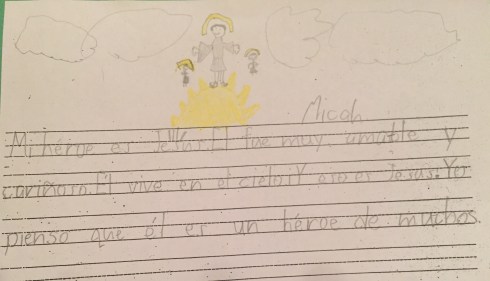 Micah
Mi héroe es Jesus. El fue muy amable y
cariñoso. El vive en el cielo. Y ese es Jesus. Yo
pienso que él es un héroe de muchos.